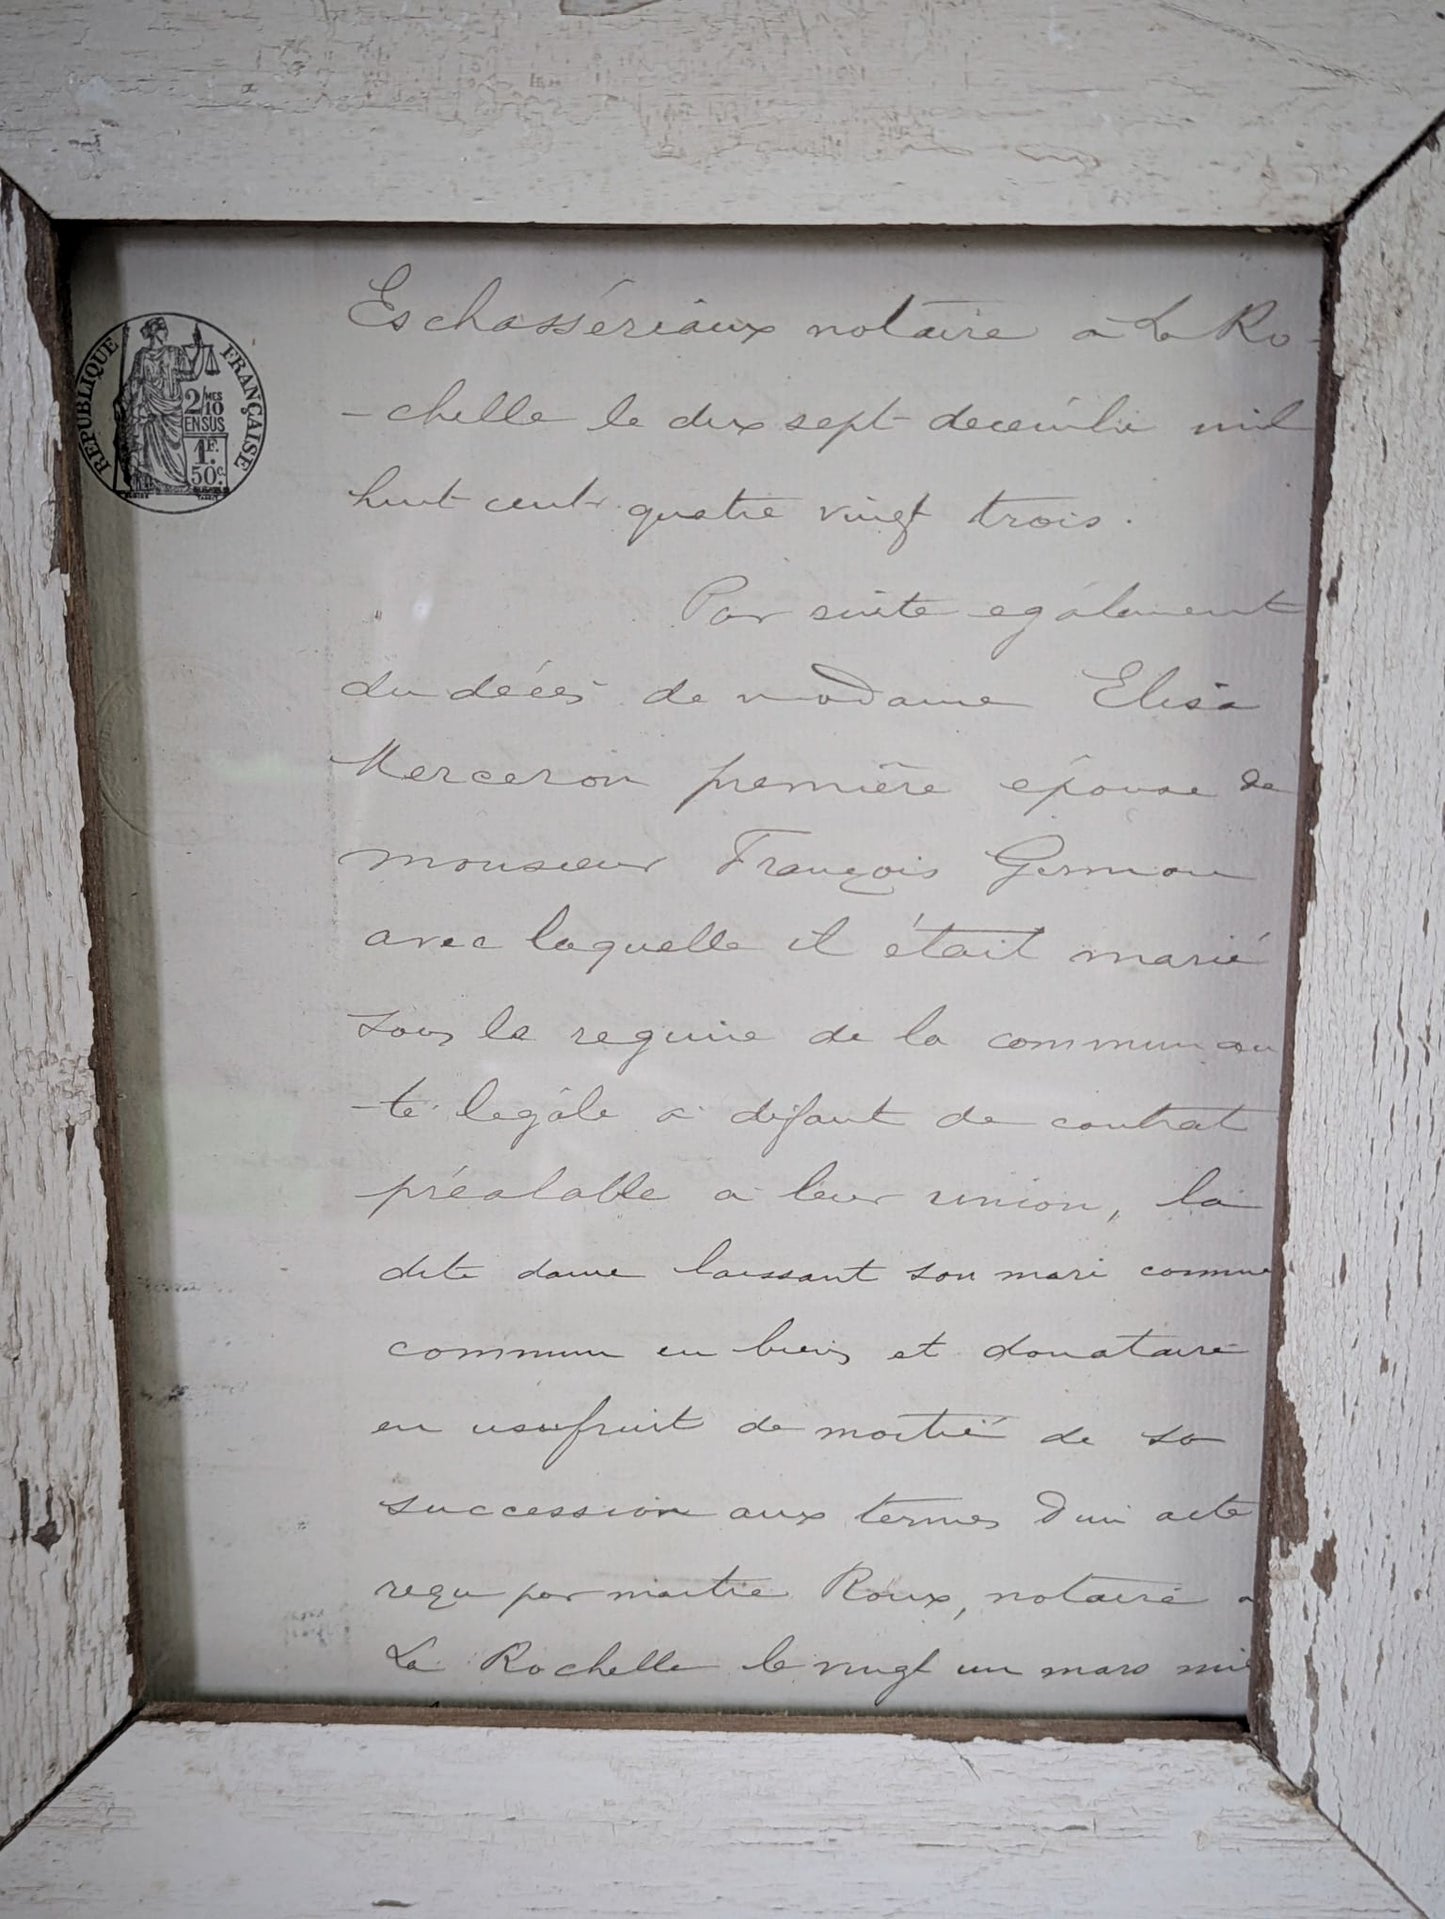 RÉPUBLIQUE FRANÇAISE
2/10 MES
EN SUS
1F.
50c.
Eschassériaux notaire à La Ro-
-chelle le dix sept décembre mil
huit cent quatre vingt trois.
Par suite également
du décès de madame Elisa
Merceron première épouse de
monsieur François Germon
avec laquelle il était marié
sous le regime de la communau
-té légale à défaut de contrat
préalable à leur union, la
dite dame laissant son mari comme
commun en biens et donataire
en usufruit de moitié de sa
succession aux termes d'un acte
reçu par maitre Roux, notaire à
La Rochelle le vingt un mars mil